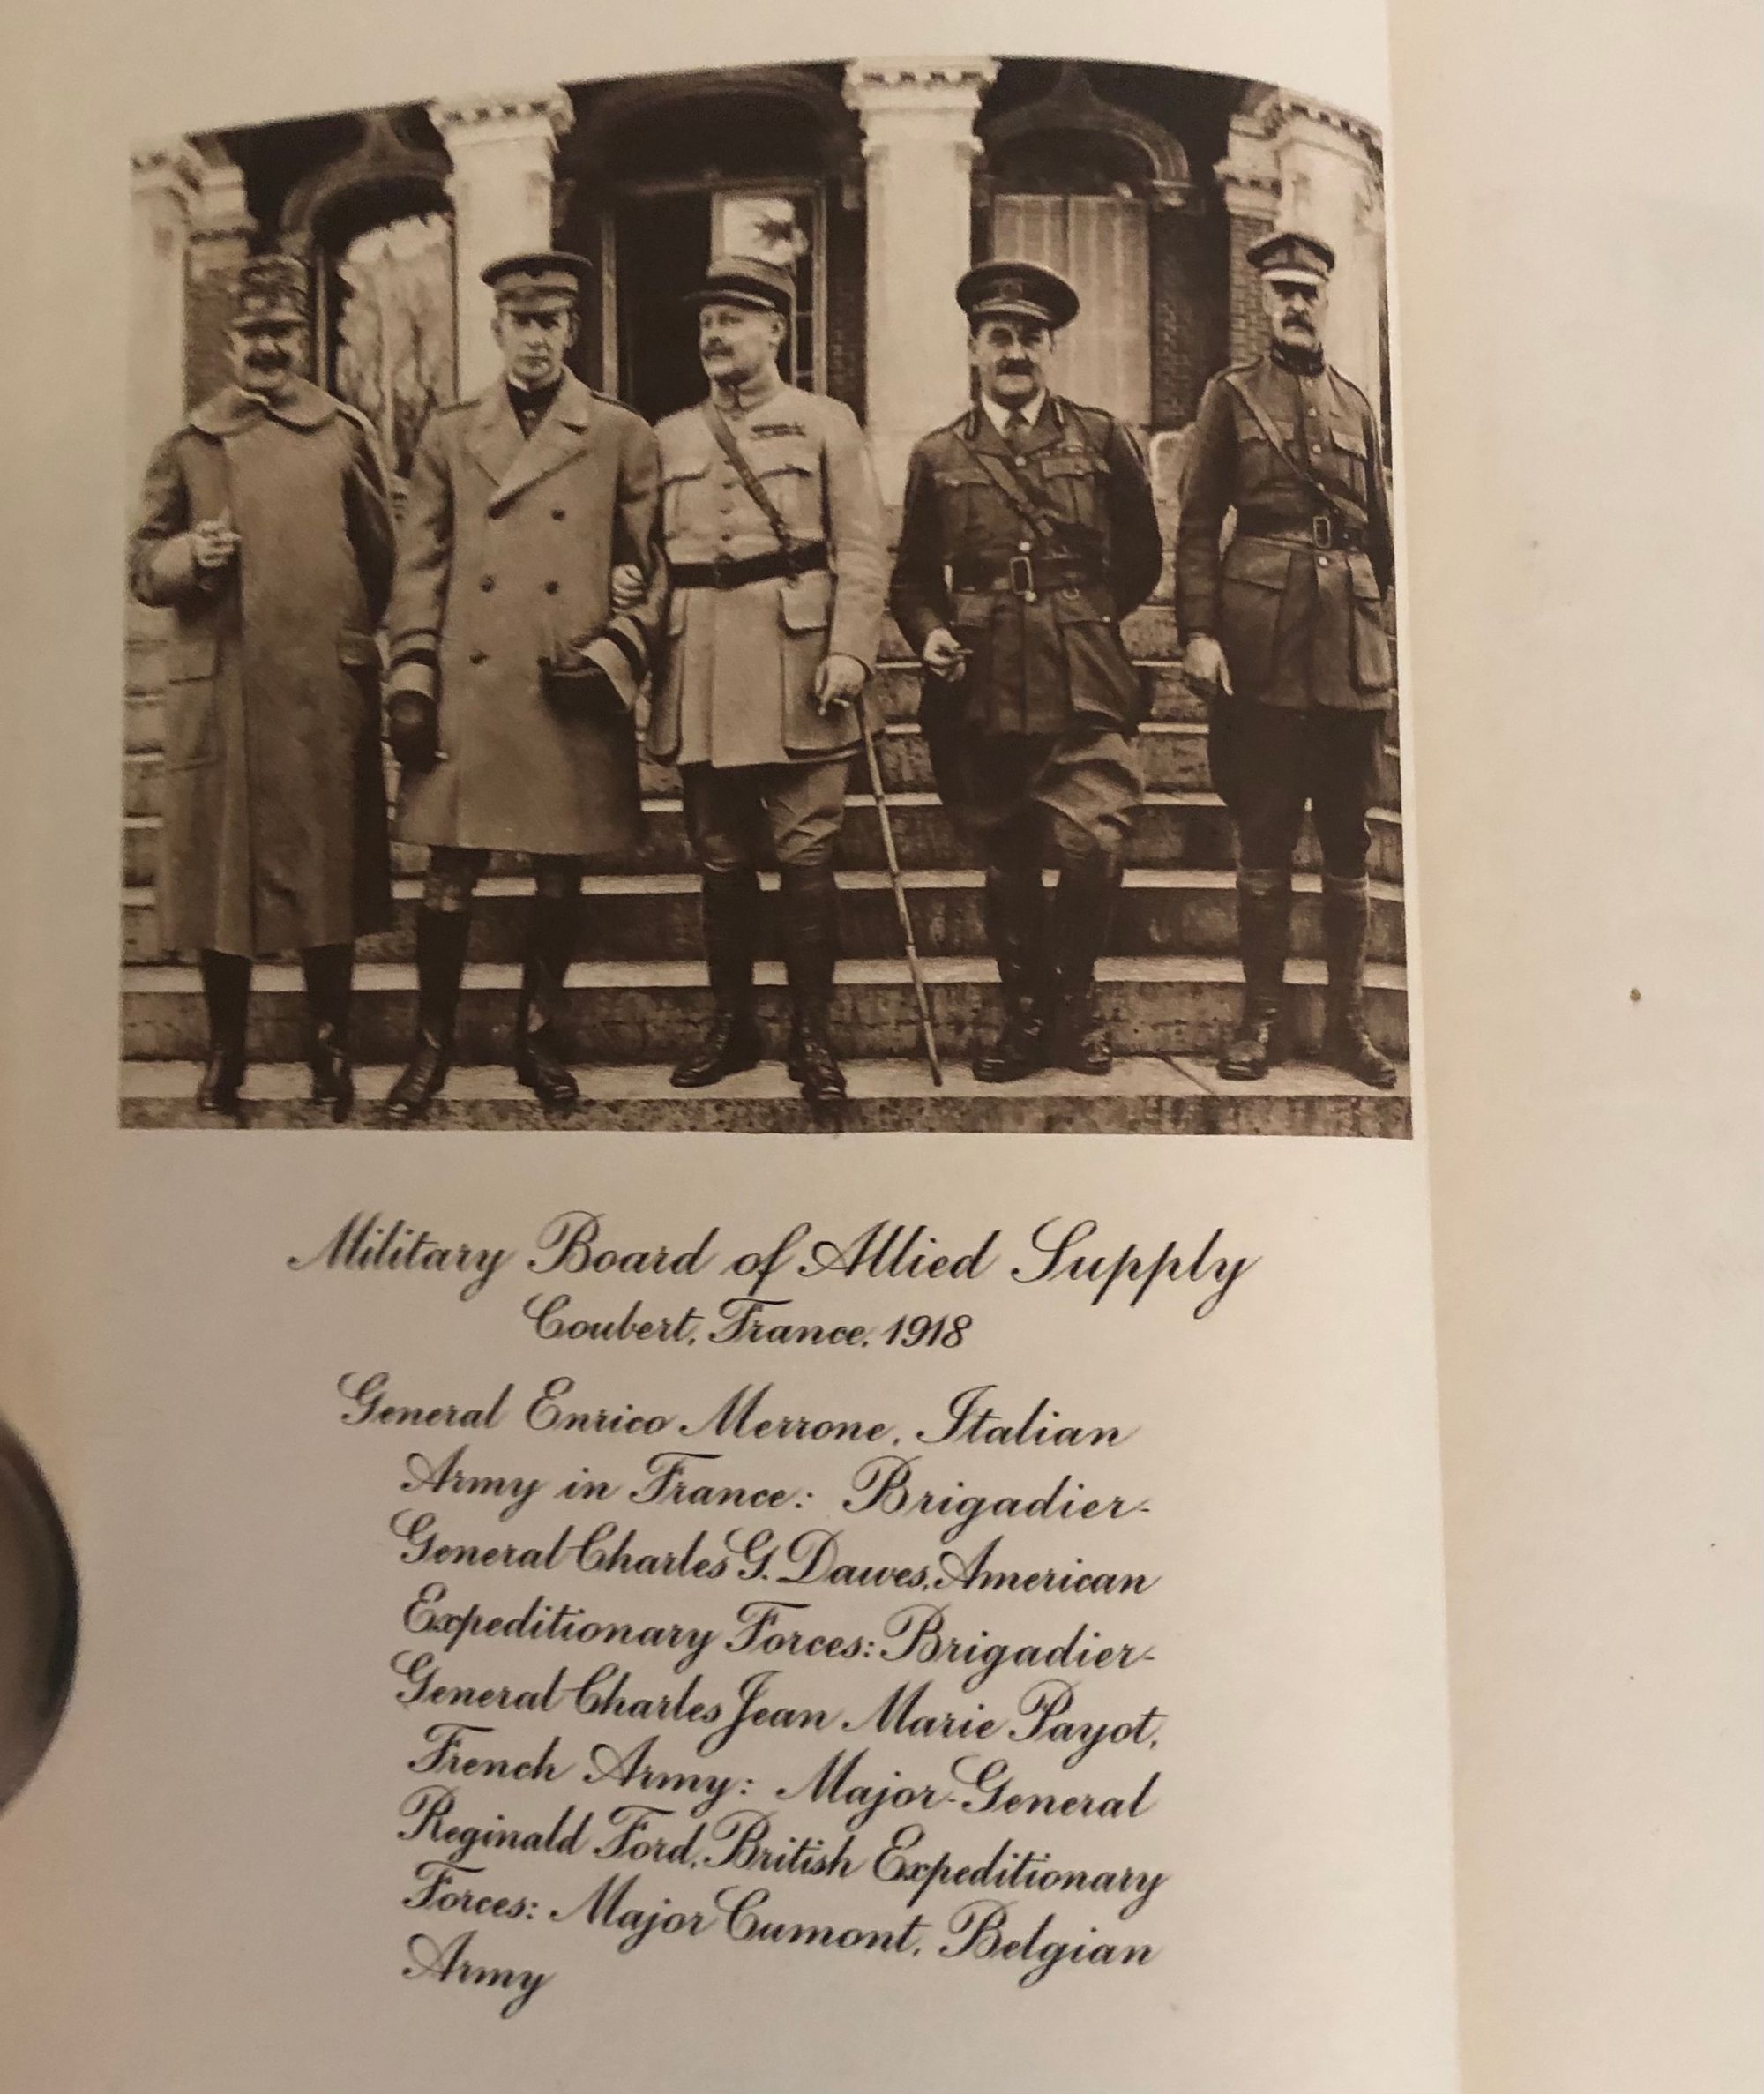 Military Board of Allied Supply
Coubert, France, 1918
General Enrico Merrone, Italian
Army in France: Brigadier-
General Charles G. Dawes, American
Expeditionary Forces: Brigadier-
General Charles Jean Marie Payot,
French Army: Major-General
Reginald Ford, British Expeditionary
Forces: Major Cumont, Belgian
Army